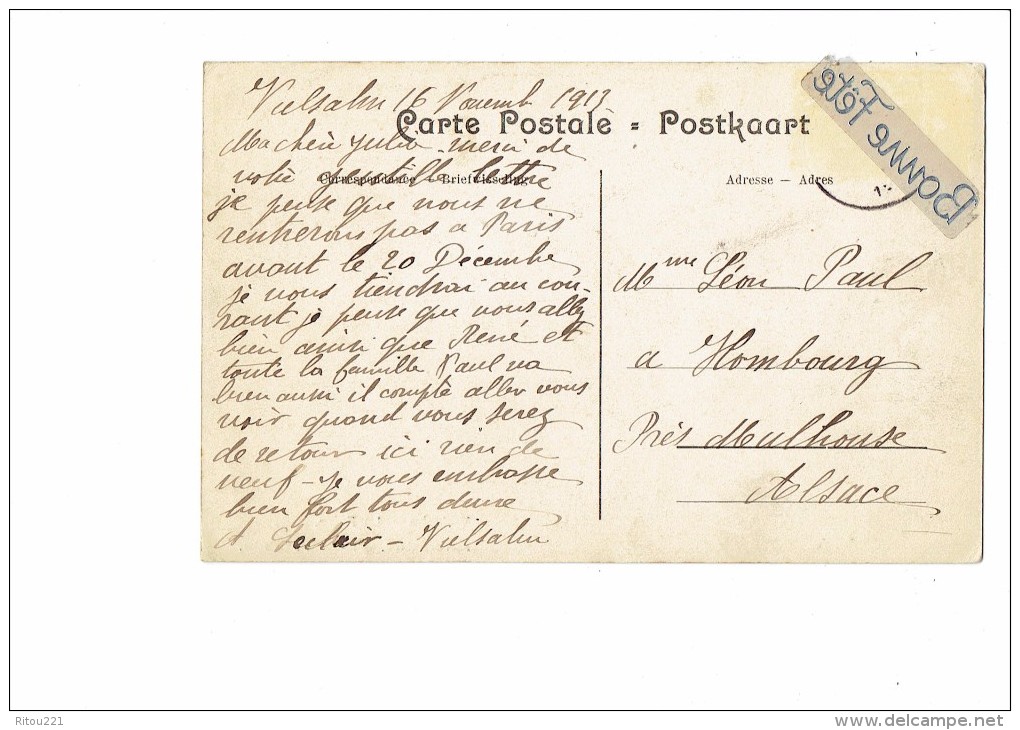 Vielsalm 16 Novemb 1913
Carte Postale = Postkaart
Ma chère Julia - merci de
Correspondance - Briefwisseling
votre gentille lettre
je pense que nous ne
rentrerons pas a Paris
avant le 20 Décembre
je vous tiendrai au cou-
rant je pense que vous allez
bien ainsi que René et
toute la famille Paul va
bien aussi il compte aller vous
voir quand vous serez
de retour ici rien de
neuf - je vous embrasse
bien fort tous deux
A Leclair - Vielsalm
Adresse - Adres
BONNE Fête
Mme Léon Paul
a Hombourg
Près Mulhouse
Alsace
Ritou221
www.delcampe.net